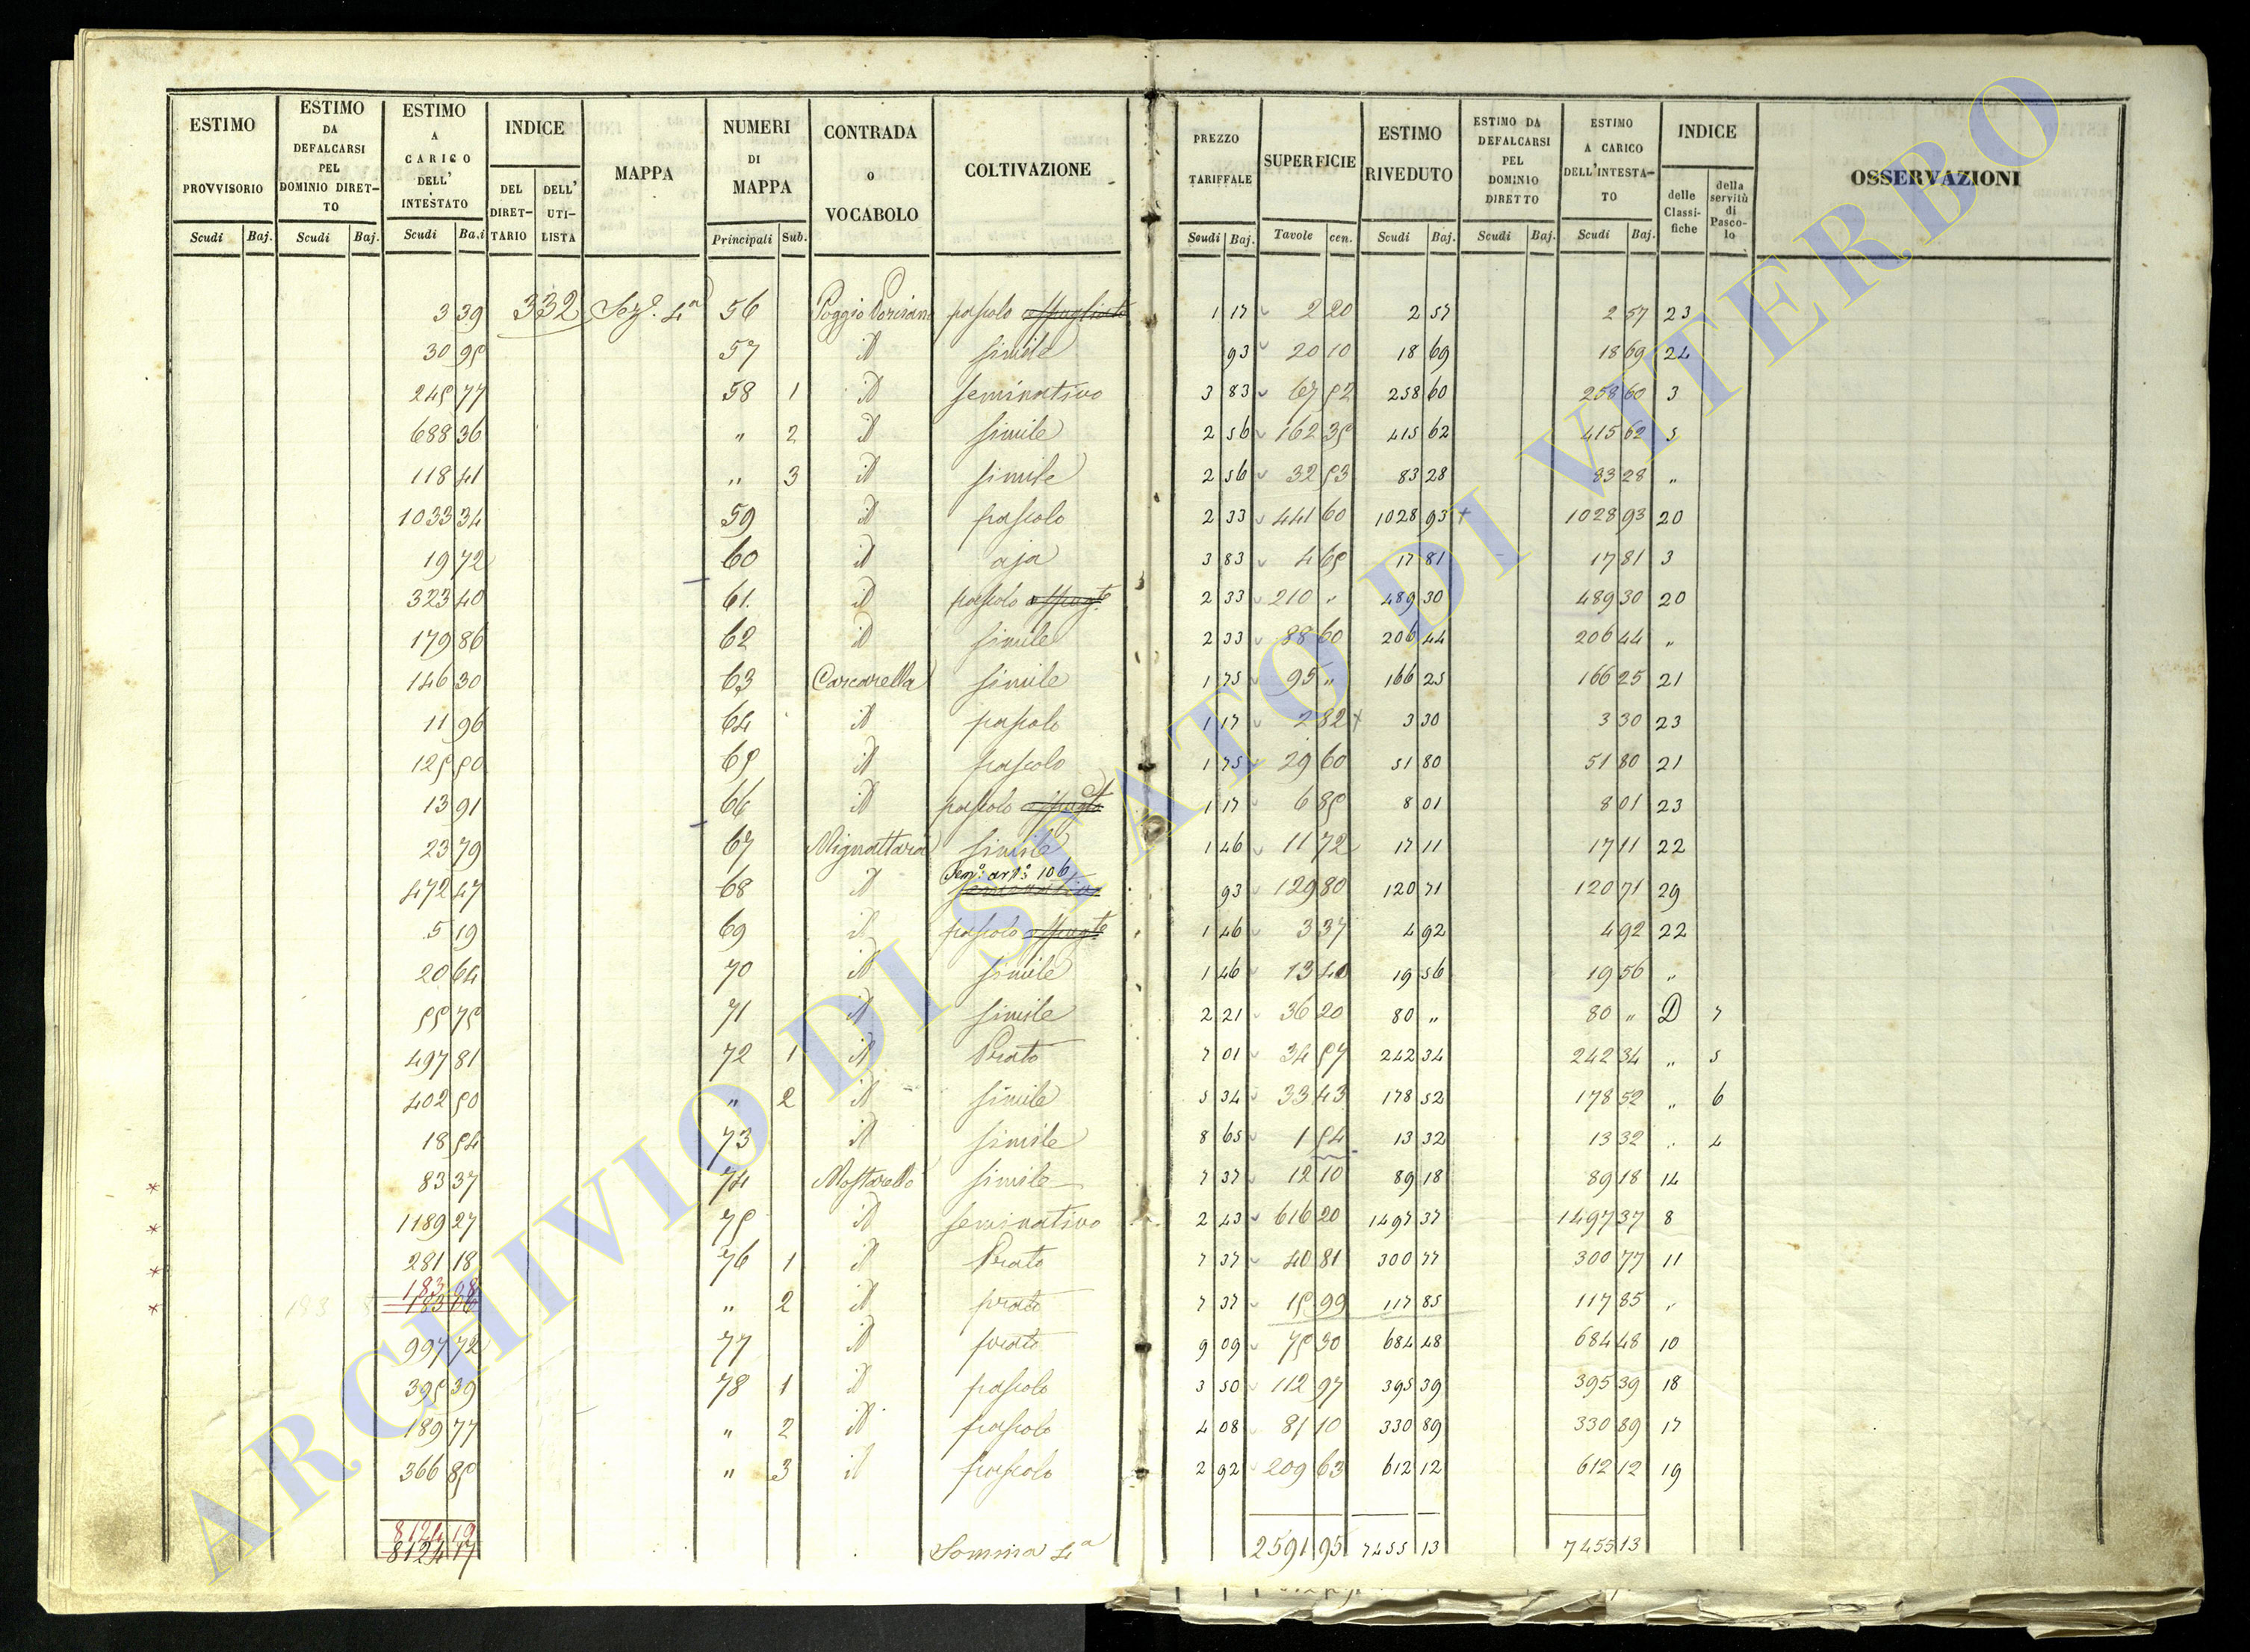 ESTIMO PROVVISORIO Scudi Baj.
ESTIMO DA DEFALCARSI PEL DOMINIO DIRET-TO Scudi Baj.
ESTIMO A CARICO DELL' INTESTATO Scudi Ba.i
INDICE DEL DIRET-TARIO DELL' UTI-LISTA
MAPPA
NUMERI DI MAPPA Principali Sub.
CONTRADA O VOCABOLO
COLTIVAZIONE
PREZZO TARIFFALE Scudi Baj.
SUPERFICIE Tavole cen.
ESTIMO RIVEDUTO Scudi Baj.
ESTIMO DA DEFALCARSI PEL DOMINIO DIRETTO Scudi Baj.
ESTIMO A CARICO DELL'INTESTA-TO Scudi Baj.
INDICE delle Classi-fiche della servitù di Pasco-lo
OSSERVAZIONI
3 39 332 Sez.e 4a 56 pascolo 1 17 2 20 2 57 2 57 23
30 95 57 id simile 93 20 10 18 69 18 69 24
245 77 58 1 id seminativo 3 83 67 52 258 60 258 60 3
688 36 " 2 id simile 2 56 162 35 415 62 415 62 5
118 41 " 3 id simile 2 56 32 53 83 28 83 28 "
1033 34 59 id pascolo 2 33 441 60 1028 93 + 1028 93 20
19 72 60 id aja 3 83 4 65 17 81 17 81 3
323 40 61. id pascolo 2 33 210 " 489 30 489 30 20
179 86 62 id simile 2 33 88 60 206 44 206 44 "
146 30 63 Carcarella simile 1 75 95 " 166 25 166 25 21
11 96 64 id pascolo 1 17 2 82 + 3 30 3 30 23
125 50 65 id pascolo 1 75 29 60 51 80 51 80 21
13 91 66 id pascolo 1 17 6 85 8 01 8 01 23
23 79 67 Mignattara simile 1 46 11 72 17 11 17 11 22
472 47 68 id Sem.o art.o 106 seminativo 93 129 80 120 71 120 71 29
5 19 69 id pascolo 1 46 3 37 4 92 4 92 22
20 64 70 id simile 1 46 13 40 19 56 19 56 "
55 75 71 id simile 2 21 36 20 80 " 80 " D 7
497 81 72 1 id Prato 7 01 34 57 242 34 242 34 " 5
402 50 " 2 id simile 5 34 33 43 178 52 178 52 " 6
18 54 73 id simile 8 65 1 54 13 32 13 32 " 4
* 83 37 74 Mostarello simile 7 37 12 10 89 18 89 18 14
* 1189 27 75 id seminativo 2 43 616 20 1497 37 1497 37 8
* 281 18 76 1 id Prato 7 37 40 81 300 77 300 77 11
* 183 08 " 2 id prato 7 37 15 99 117 85 117 85 "
997 72 77 id prato 9 09 75 30 684 48 684 48 10
395 39 78 1 id pascolo 3 50 112 97 395 39 395 39 18
189 77 " 2 id pascolo 4 08 81 10 330 89 330 89 17
366 85 " 3 id pascolo 2 92 209 63 612 12 612 12 19
8124 19
8124 17 Somma 4a 2591 95 7455 13 7455 13
ARCHIVIO DI STATO DI VITERBO